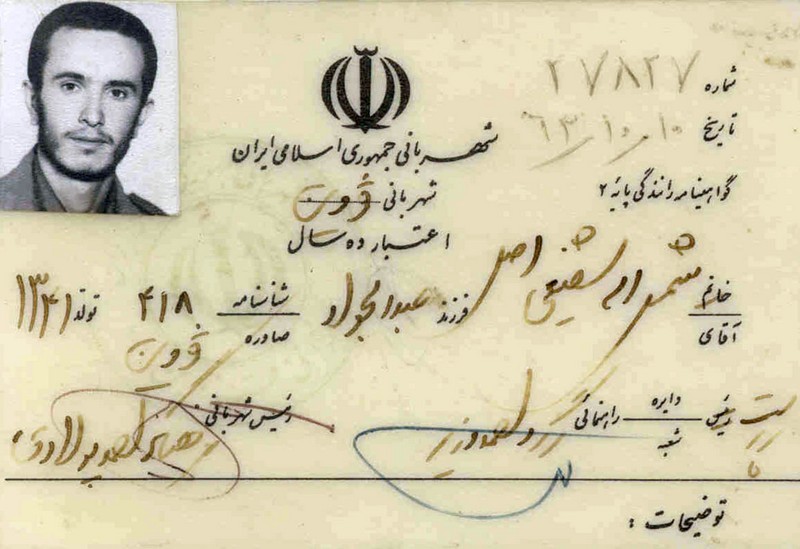 شماره ۲۷۸۲۷
شهربانی جمهوری اسلامی ایران
تاریخ ۶۳/۱۰/۱۰
شهربانی قزوین
گواهینامه رانندگی پایهٔ ۲
اعتبار ده سال
خانم آقای شمس اله شفیعی اصل فرزند عبدالجواد شناسنامه ۴۱۸ تولد ۱۳۴۱
صادره قزوین
رئیس دایره شعبه راهنمائی
رئیس شهربانی
توضیحات :